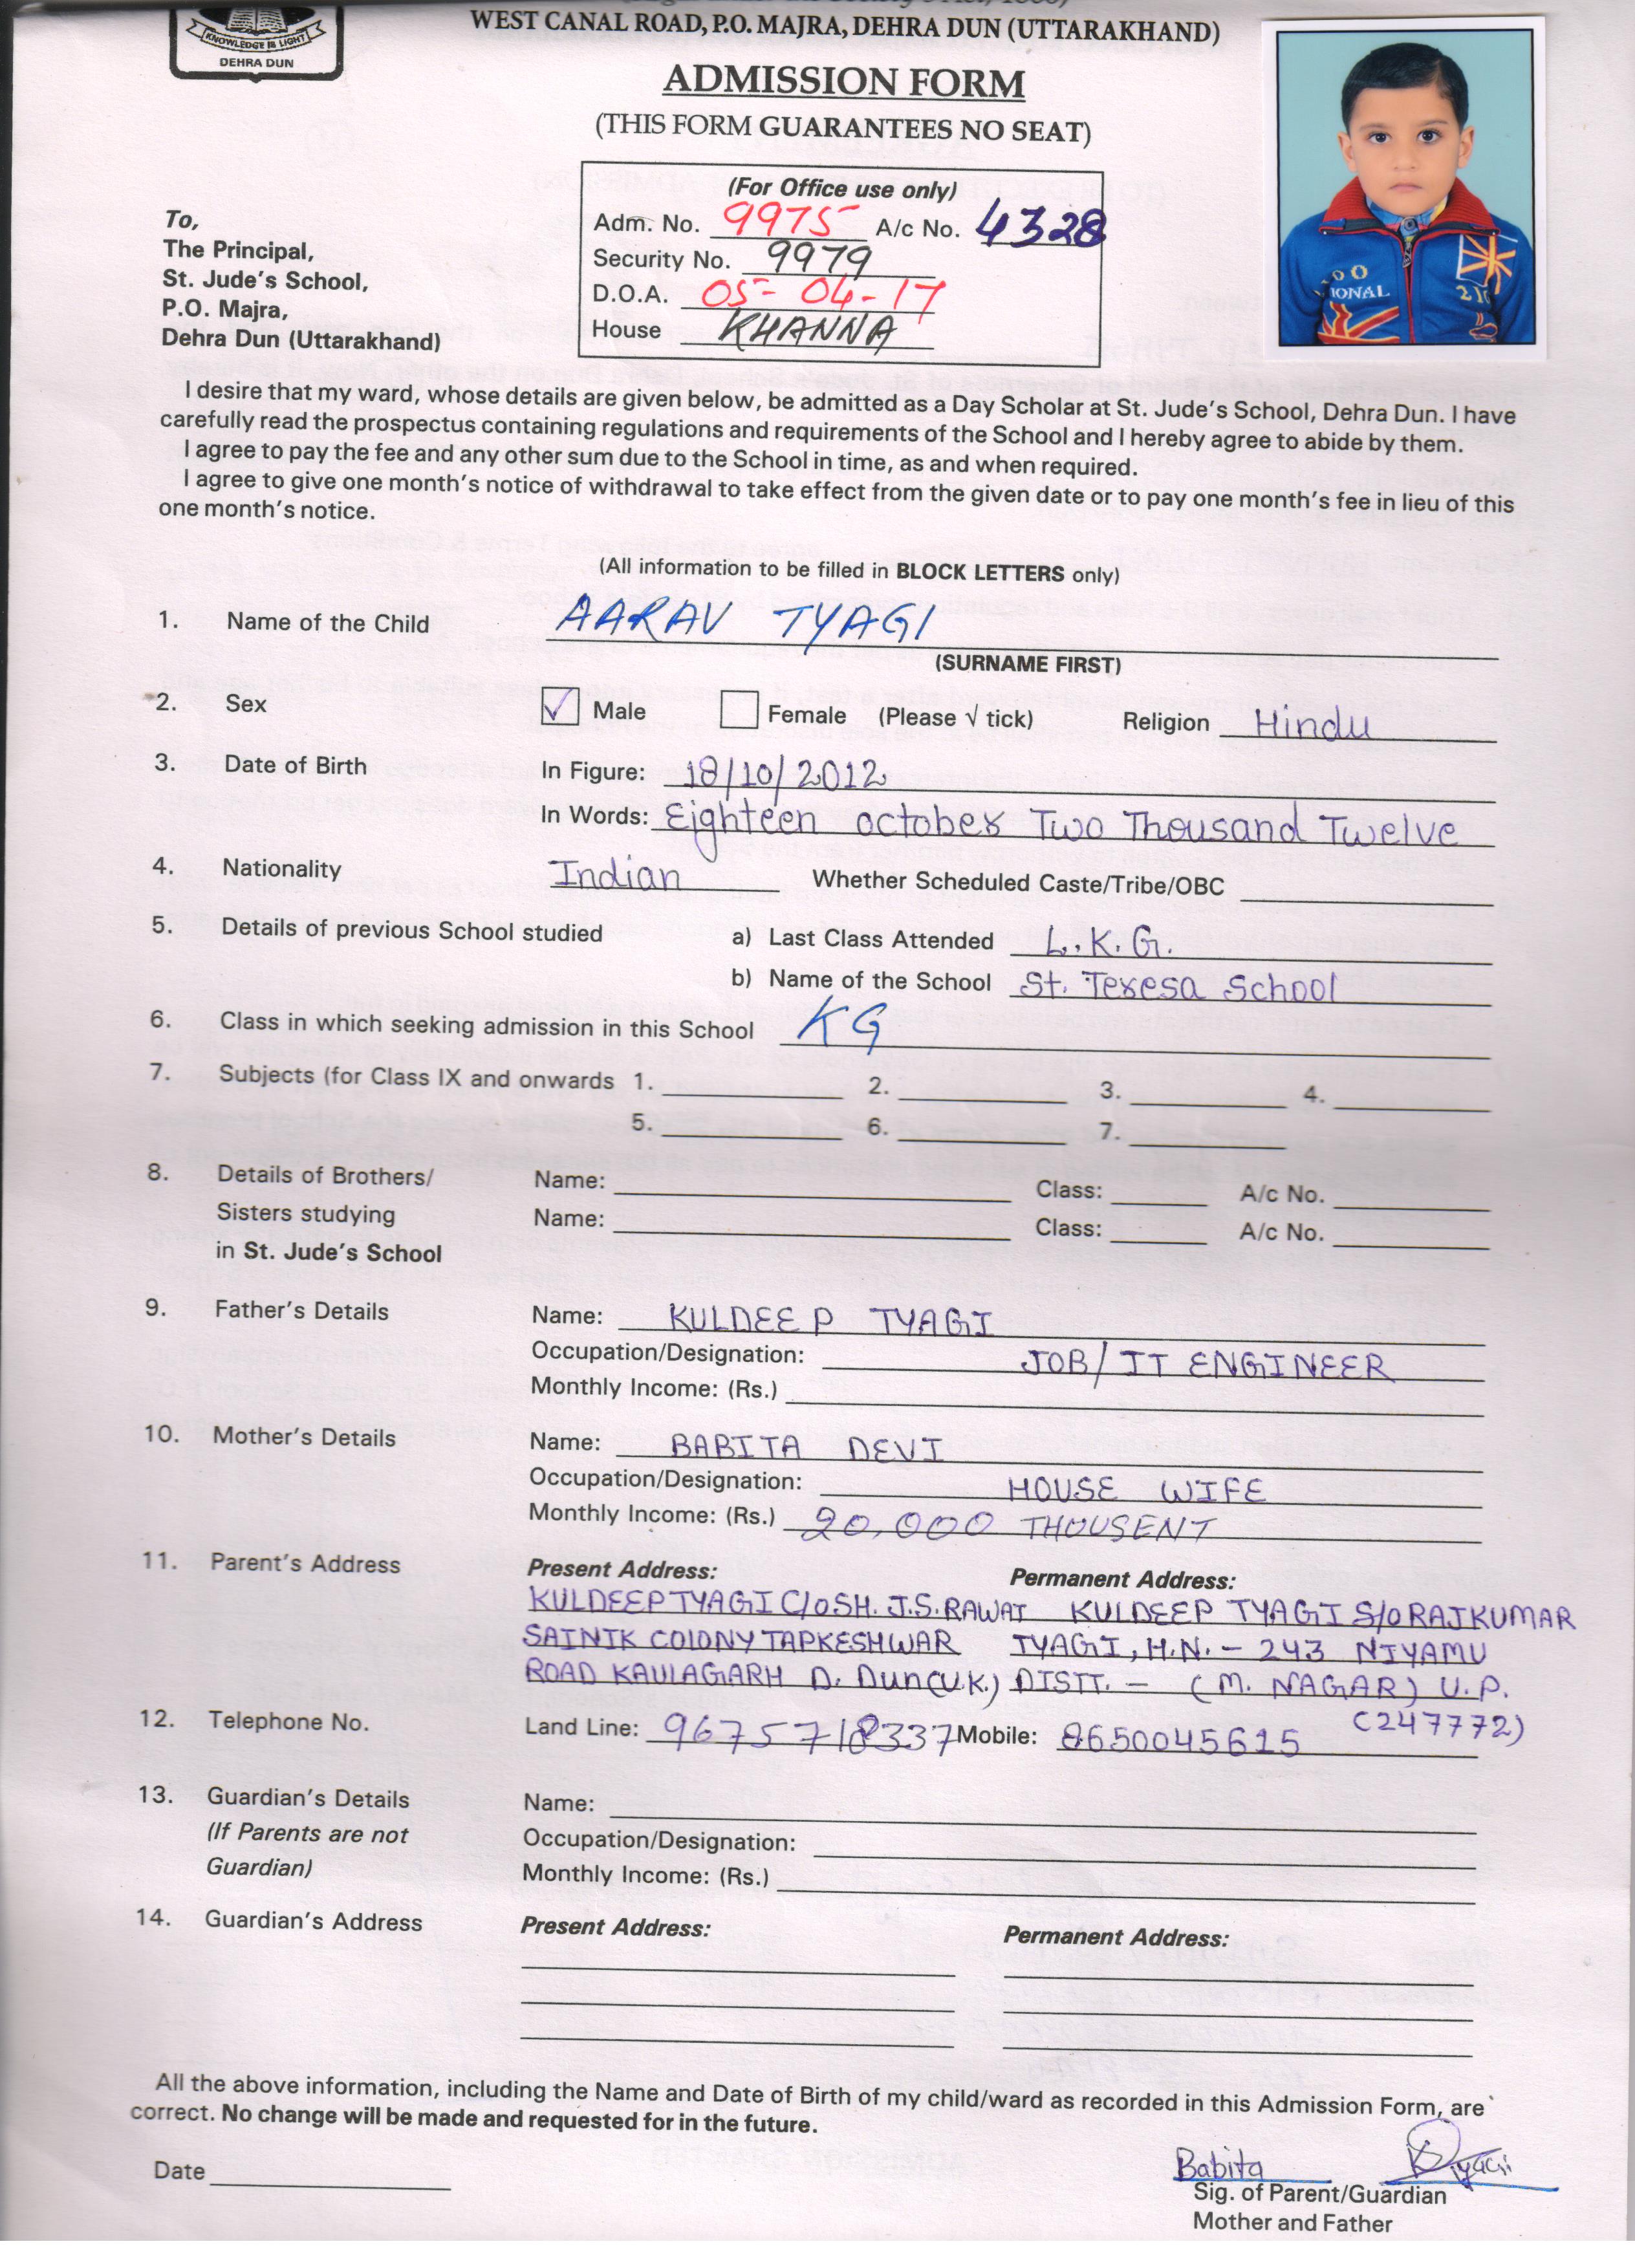 KNOWLEDGE IS LIGHT
DEHRA DUN
WEST CANAL ROAD, P.O. MAJRA, DEHRA DUN (UTTARAKHAND)
ADMISSION FORM
(THIS FORM GUARANTEES NO SEAT)
(For Office use only)
Adm. No. 9975 A/c No. 4328
Security No. 9979
D.O.A. 05-04-17
House KHANNA
To,
The Principal,
St. Jude's School,
P.O. Majra,
Dehra Dun (Uttarakhand)
IONAL
I desire that my ward, whose details are given below, be admitted as a Day Scholar at St. Jude's School, Dehra Dun. I have
carefully read the prospectus containing regulations and requirements of the School and I hereby agree to abide by them.
I agree to pay the fee and any other sum due to the School in time, as and when required.
I agree to give one month's notice of withdrawal to take effect from the given date or to pay one month's fee in lieu of this
one month's notice.
(All information to be filled in BLOCK LETTERS only)
1. Name of the Child AARAV TYAGI
(SURNAME FIRST)
2. Sex ✓ Male Female (Please √ tick) Religion Hindu
3. Date of Birth In Figure: 18/10/2012
In Words: Eighteen october Two Thousand Twelve
4. Nationality Indian Whether Scheduled Caste/Tribe/OBC
5. Details of previous School studied a) Last Class Attended L.K.G.
b) Name of the School St. Teresa School
6. Class in which seeking admission in this School KG
7. Subjects (for Class IX and onwards 1. 2. 3. 4.
5. 6. 7.
8. Details of Brothers/ Name: Class: A/c No.
Sisters studying Name: Class: A/c No.
in St. Jude's School
9. Father's Details Name: KULDEEP TYAGI
Occupation/Designation: JOB/IT ENGINEER
Monthly Income: (Rs.)
10. Mother's Details Name: BABITA DEVI
Occupation/Designation: HOUSE WIFE
Monthly Income: (Rs.) 20,000 THOUSENT
11. Parent's Address Present Address: Permanent Address:
KULDEEP TYAGI C/O SH. J.S. RAWAT KULDEEP TYAGI S/O RAJKUMAR
SAINIK COLONY TAPKESHWAR TYAGI, H.N. - 243 NIYAMU
ROAD KAULAGARH D. Dun (U.K.) DISTT. - (M. NAGAR) U.P.
(247772)
12. Telephone No. Land Line: 9675718337 Mobile: 8650045615
13. Guardian's Details Name:
(If Parents are not Occupation/Designation:
Guardian) Monthly Income: (Rs.)
14. Guardian's Address Present Address: Permanent Address:
All the above information, including the Name and Date of Birth of my child/ward as recorded in this Admission Form, are
correct. No change will be made and requested for in the future.
Date Babita Tyagi
Sig. of Parent/Guardian
Mother and Father